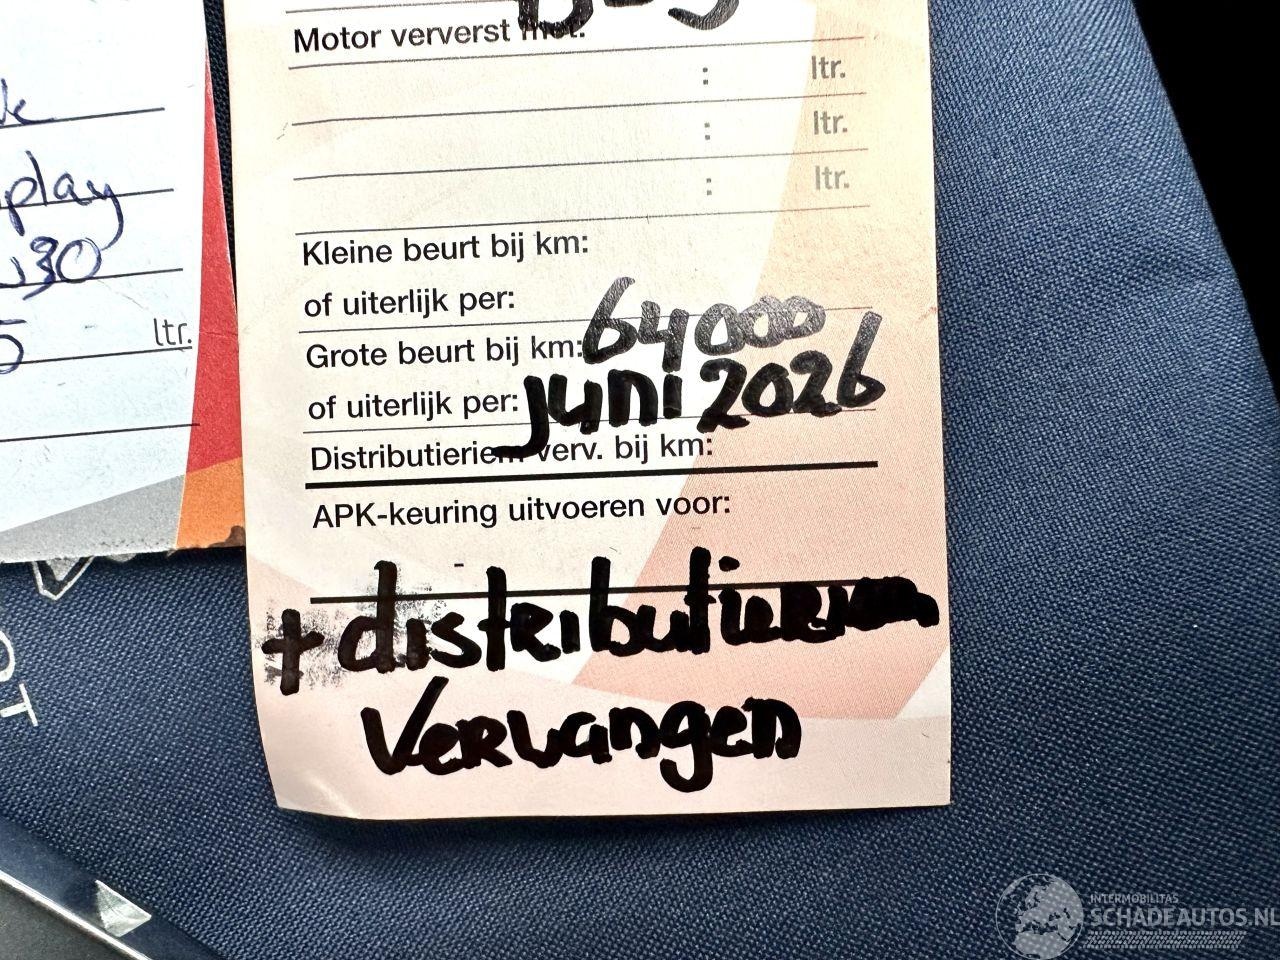 Motor ververst met:
: ltr.
: ltr.
: ltr.
Kleine beurt bij km:
of uiterlijk per:
Grote beurt bij km: 64000
of uiterlijk per: juni 2026
Distributieriem verv. bij km:
APK-keuring uitvoeren voor:
+ distributieriem
vervangen
play
30
5 ltr.
OT
INTERMOBILITAS
SCHADEAUTOS.NL